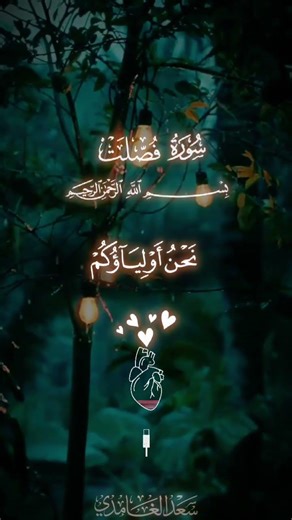 سُورَةُ فُصِّلَتْ
بِسْمِ اللَّهِ الرَّحْمَٰنِ الرَّحِيمِ
نَحْنُ أَوْلِيَآؤُكُمْ
سعد الغامدي